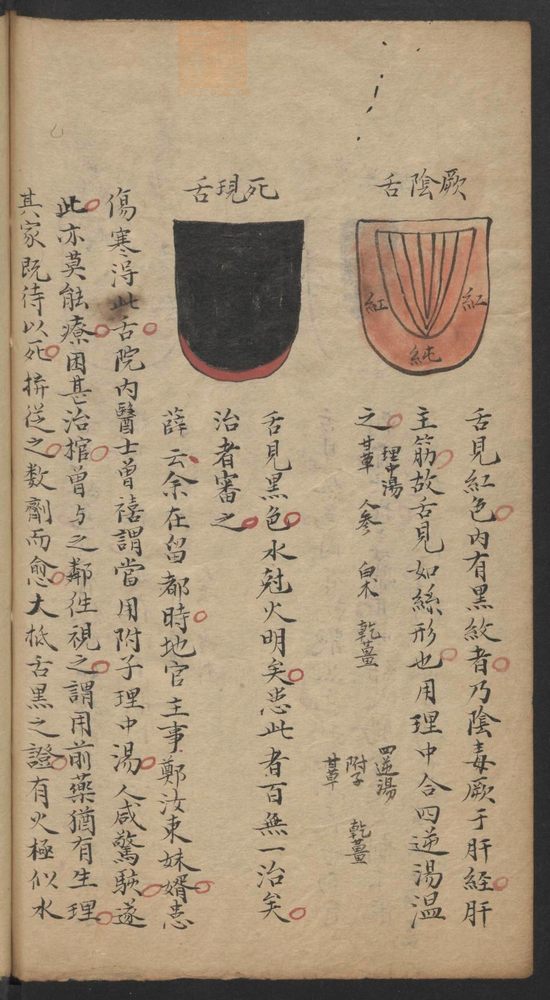 厥陰舌
紅
紅
純
舌見紅色内有黑紋者乃陰毒厥于肝經肝
主筋故舌見如絲形也用理中合四逆湯温
之
理中湯
甘草 人參 白朮 乾薑
四逆湯
附子 乾薑
甘草
死現舌
舌見黑色水尅火明矣患此者百無一治矣
治者審之
薛云余在留都時地官主事鄭汝東妹婿患
傷寒得此舌院内醫士曾禧謂當用附子理中湯人咸驚駭遂
此亦莫能療困甚治棺曾与之鄰往視之謂用前藥猶有生理
其家既待以死拚從之数劑而愈大抵舌黑之證有火極似水